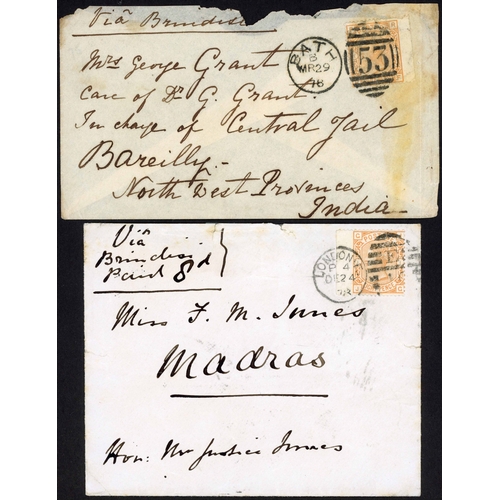 Viâ Brindisi
BATH
B
MR 29
78
53
Mrs George Grant
Care of Dr G. Grant.
In charge of Central Jail
Bareilly.
North West Provinces
India
Viâ
Brindisi
Paid 8d
LONDON
P 4
DE 24
78
Miss F. M. Innes
Madras
Hon: Mr Justice Innes